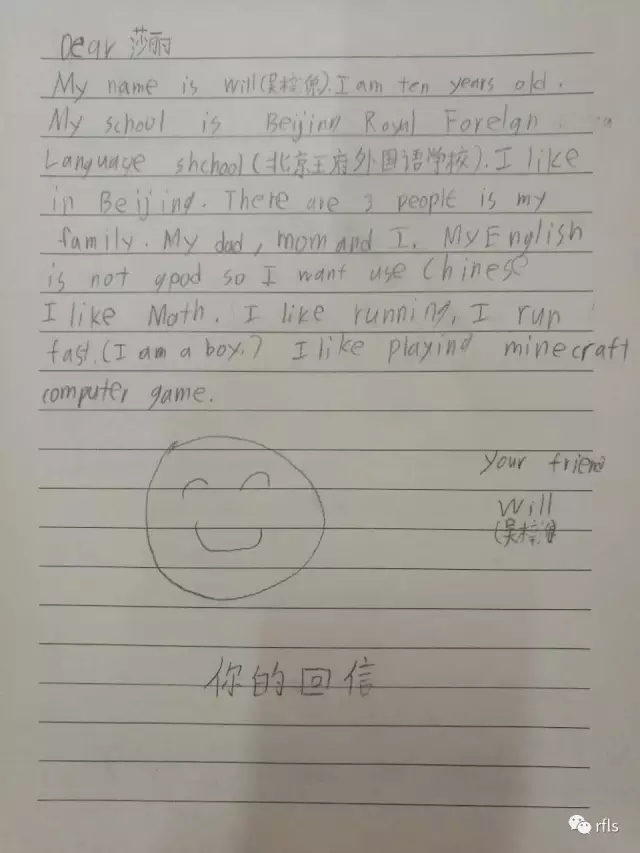 Dear 莎丽
My name is Will(吴梓). I am ten years old.
My school is Beijinn Royal Foreign
Language shchool(北京王府外国语学校). I like
in Beijing. There are 3 people is my
family. My dad, mom and I. My English
is not good so I want use Chinese
I like Math. I like running, I run
fast. (I am a boy.) I like playing minecraft
computer game.
your friend
Will
(吴梓
你的回信
rfls